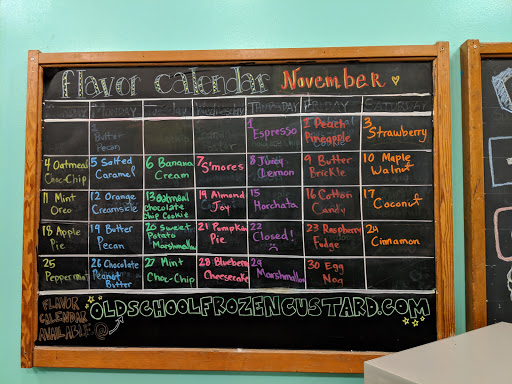 flavor calendar November
Monday Thursday Friday Saturday
1 Espresso
2 Peach Pineapple
3 Strawberry
4 Oatmeal Choc-Chip
5 Salted Caramel
6 Banana Cream
7 S'mores
8 Juicy Lemon
9 Butter Brickle
10 Maple Walnut
11 Mint Oreo
12 Orange Creamsicle
13 Oatmeal chocolate chip Cookie
14 Almond Joy
15 Horchata
16 Cotton Candy
17 Coconut
18 Apple Pie
19 Butter Pecan
20 Sweet Potato Marshmallow
21 Pumpkin Pie
22 Closed!
23 Raspberry Fudge
24 Cinnamon
25 Peppermint
26 Chocolate Peanut Butter
27 Mint Choc-Chip
28 Blueberry Cheesecake
29 Marshmallow
30 Egg Nog
FLAVOR CALENDAR AVAILABLE @
OLDSCHOOLFROZENCUSTARD.COM